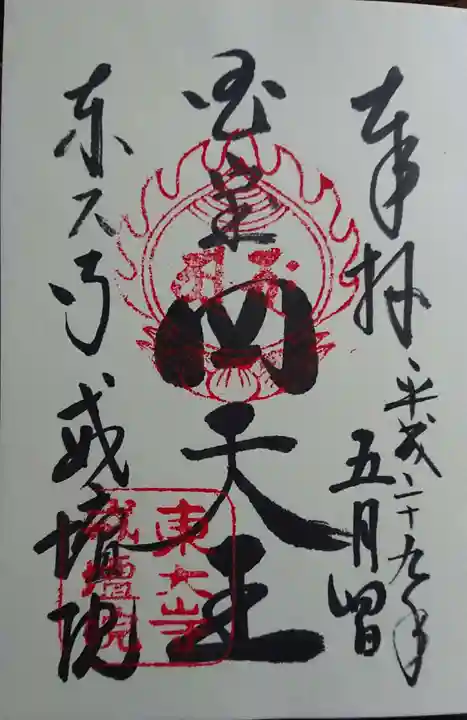 奉拝
平成二十九年
五月四日
国宝
四天王
東大寺
戒壇院
東大寺
戒壇院